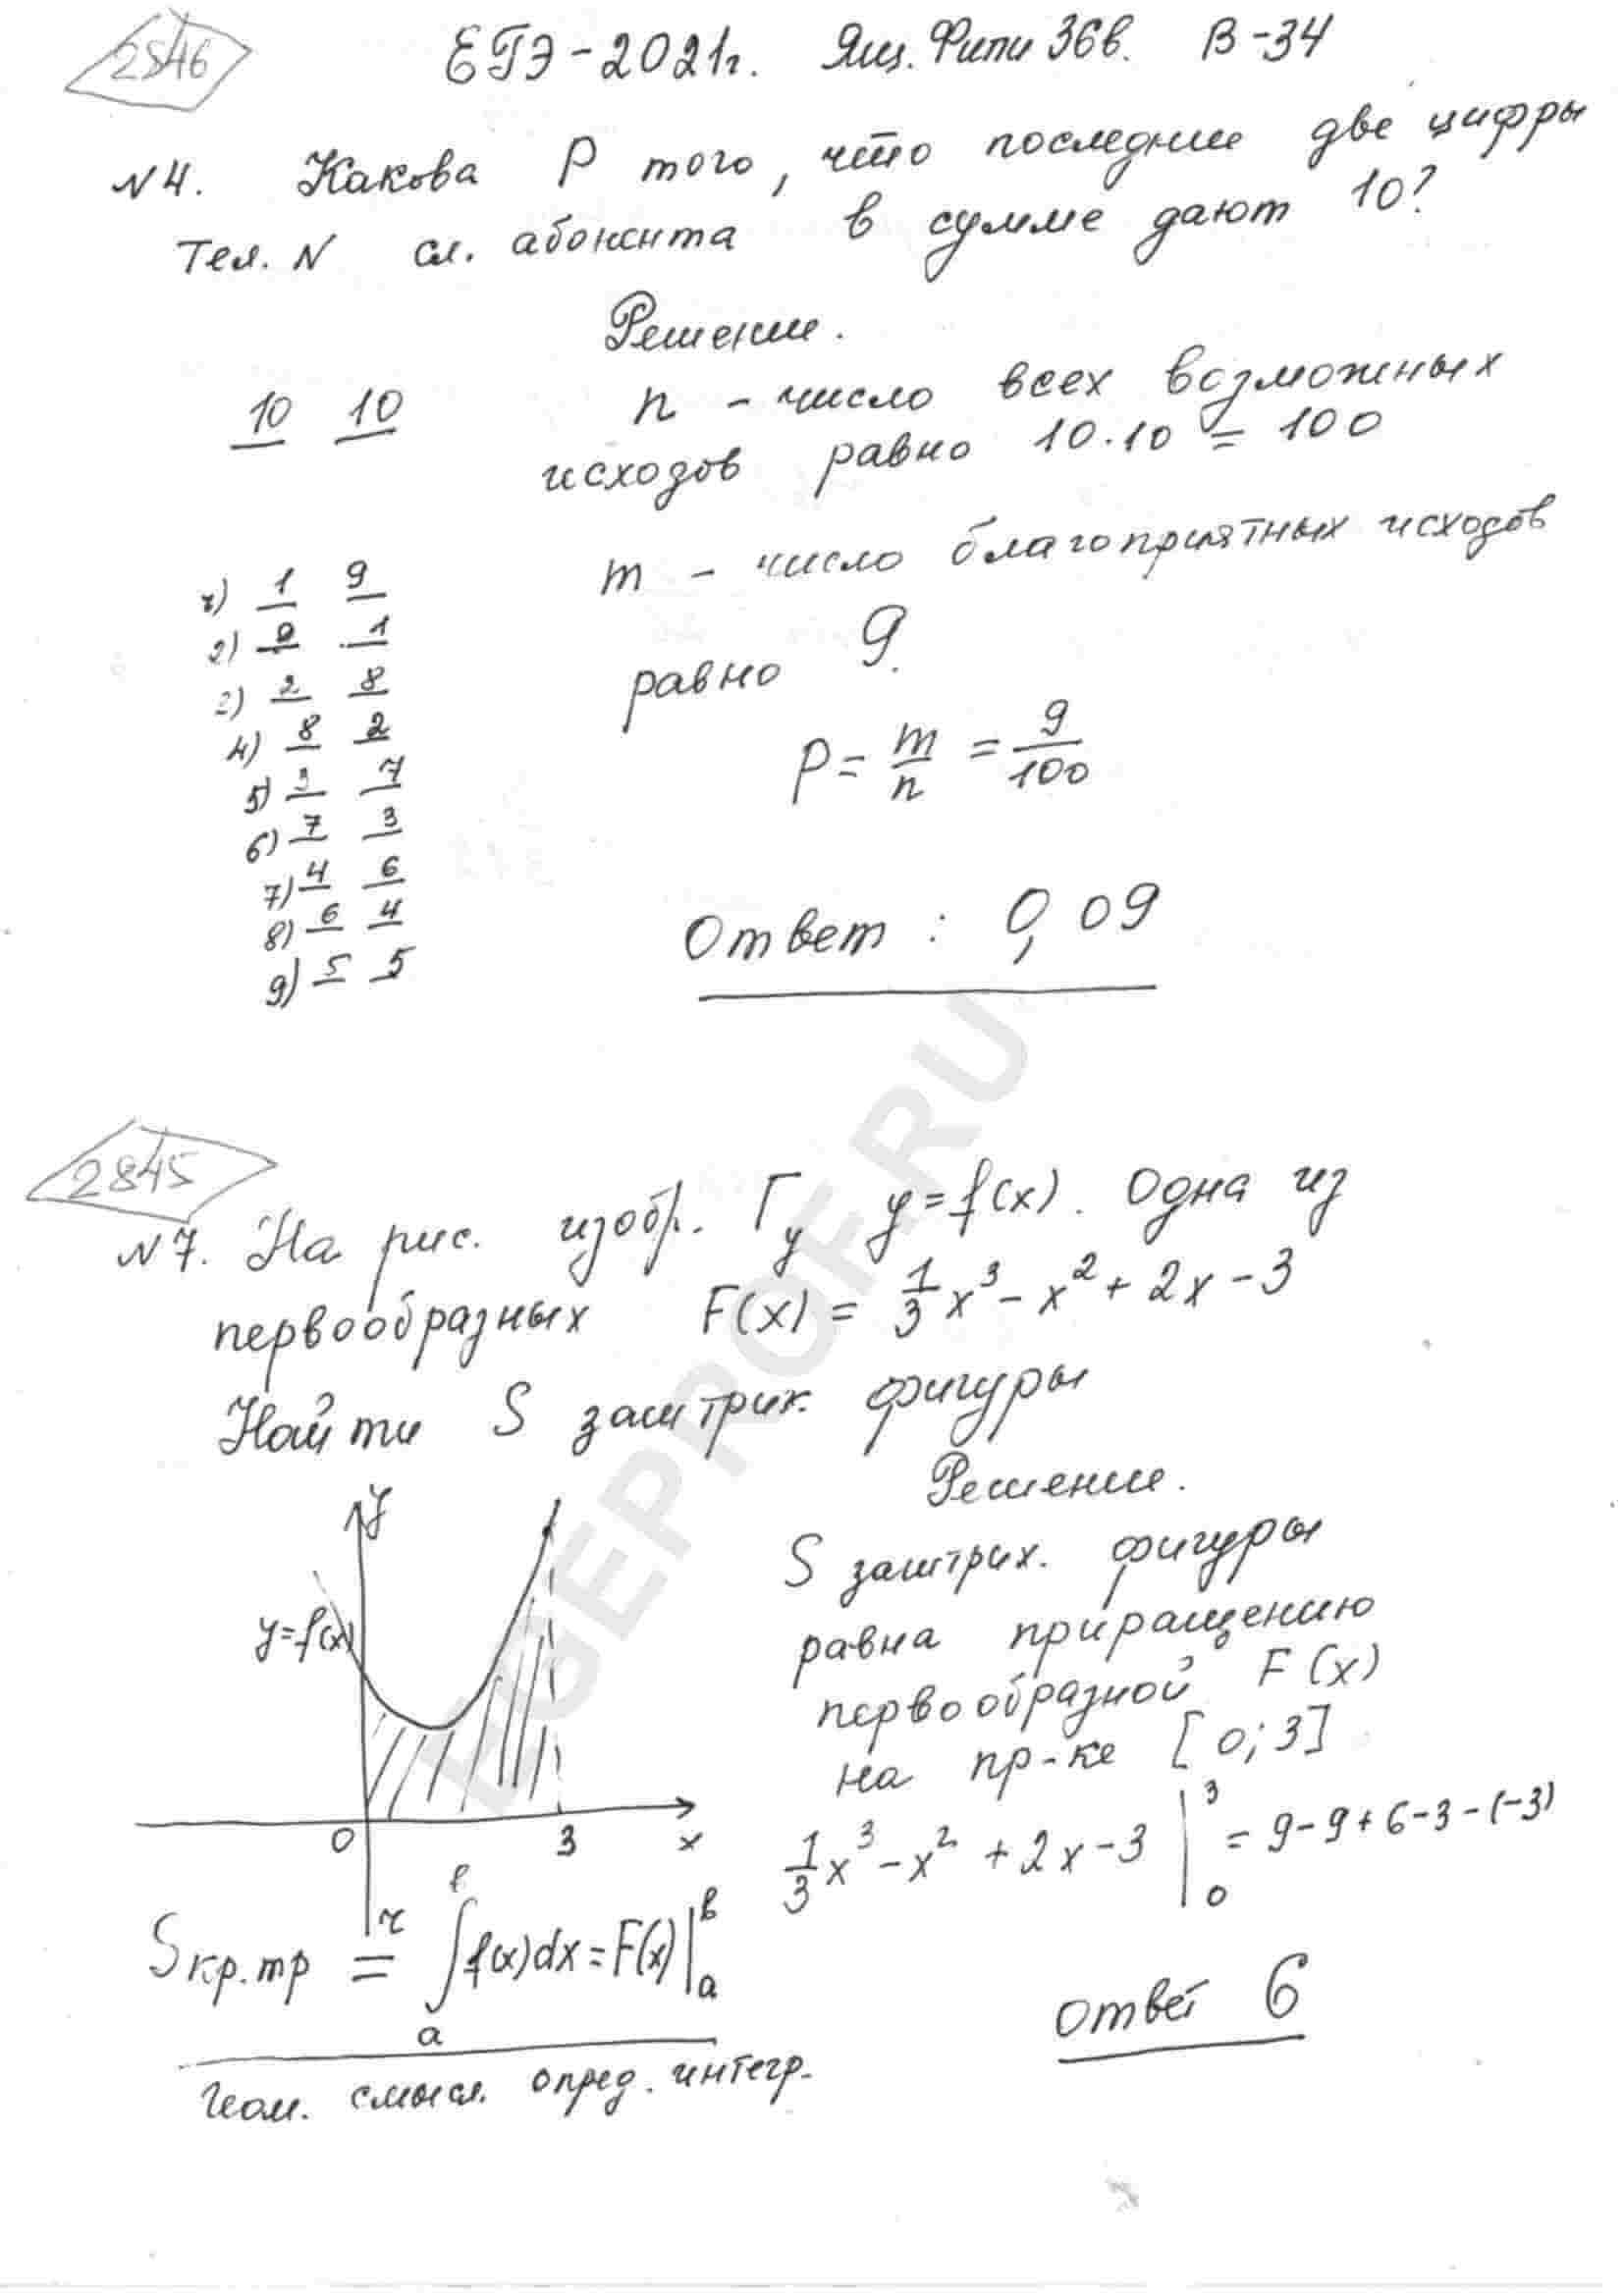 2846
ЕГЭ-2021г. Ящ. Фипи 36в. В-34
N4. Какова P того, что последние две цифры
Тел. N сл. абонента в сумме дают 10?
Решение.
10 10
n - число всех возможных
исходов равно 10·10 = 100
m - число благоприятных исходов
равно 9.
1) 1 9
2) 9 1
3) 2 8
4) 8 2
5) 3 7
6) 7 3
7) 4 6
8) 6 4
9) 5 5
P = m/n = 9/100
Ответ: 0,09
EGEPROF.RU
2845
N7. На рис. изобр. Гу y=f(x). Одна из
первообразных F(x) = 1/3 x³ - x² + 2x - 3
Найти S заштрих. фигуры
Решение.
y
y=f(x)
0 3 x
S заштрих. фигуры
равна приращению
первообразной F(x)
на пр-ке [0;3]
1/3 x³ - x² + 2x - 3 |₀³ = 9-9+6-3-(-3)
Sкр.тр = ∫ₐᵇ f(x)dx = F(x)|ₐᵇ
Геом. смысл. опред. интегр.
Ответ 6